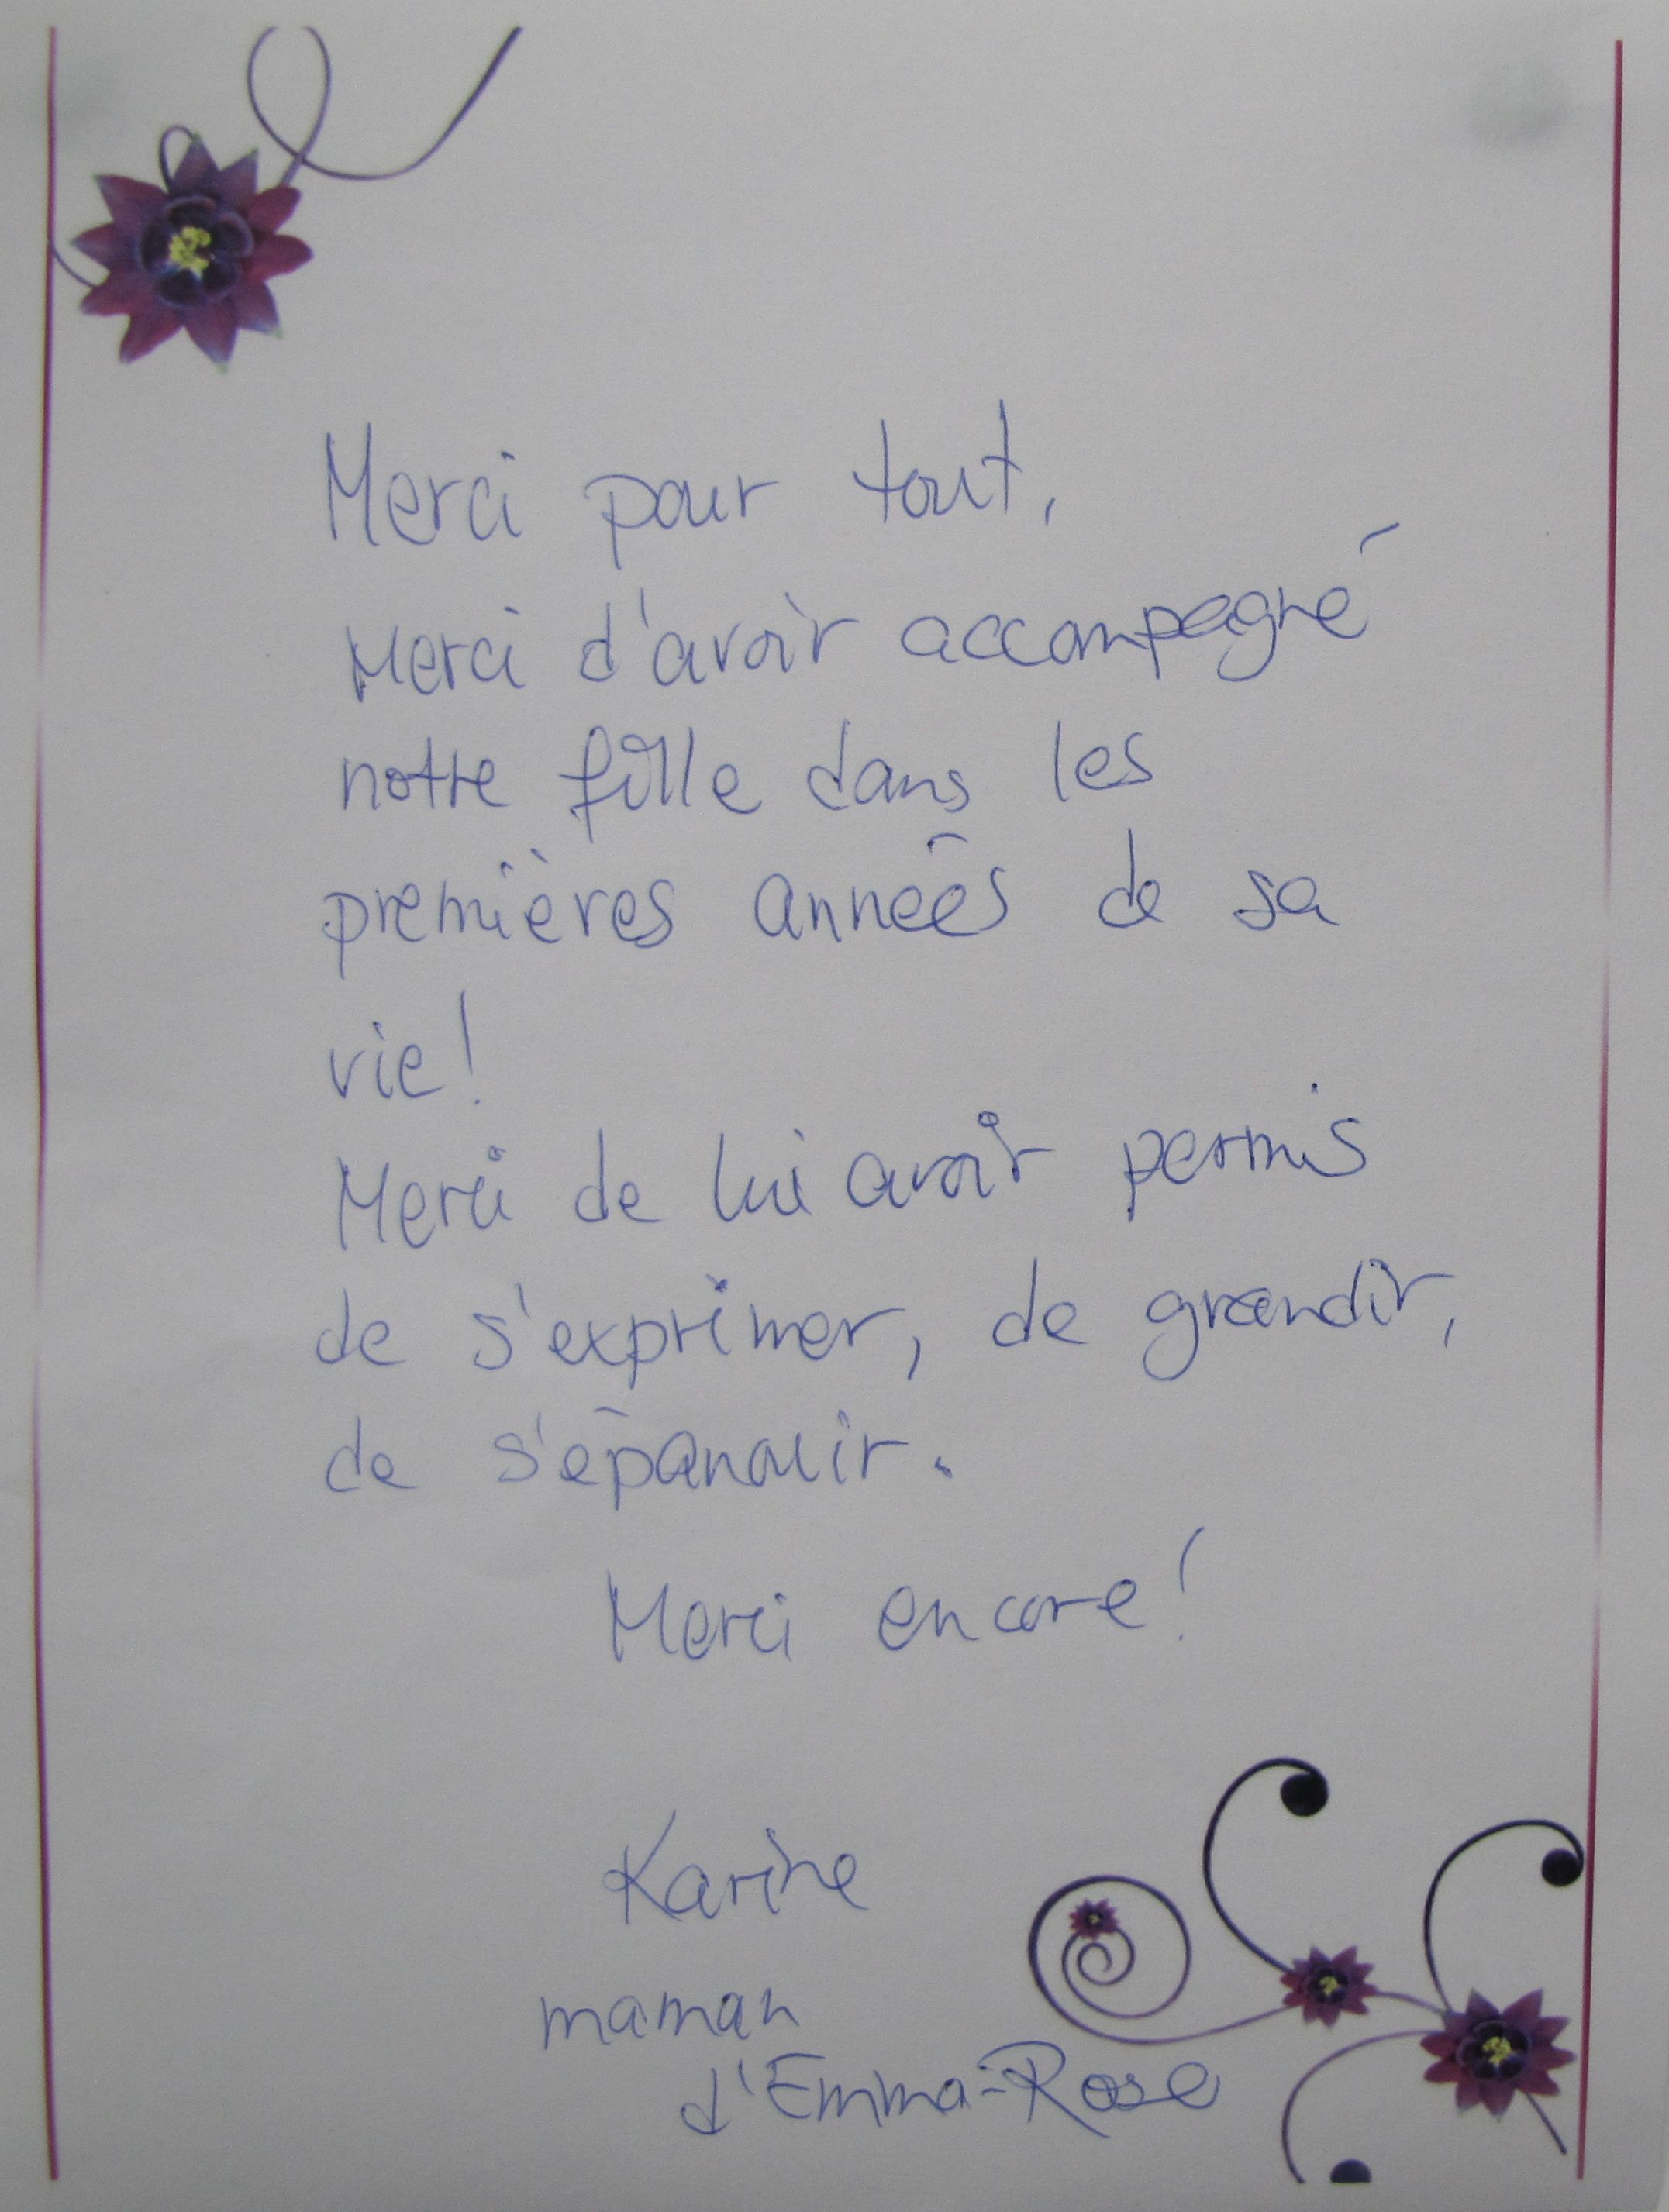 Merci pour tout,
Merci d'avoir accompagné
notre fille dans les
premières années de sa
vie!
Merci de lui avoir permis
de s'exprimer, de grandir,
de s'épanouir.
Merci encore!
Karine
maman
d'Emma-Rose